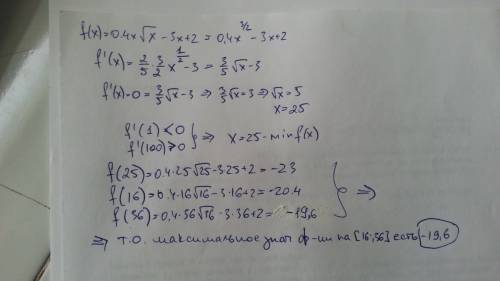 f(x)=0.4x√x - 3x+2 = 0,4x^(3/2) - 3x+2
f'(x)= 2/5 · 3/2 x^(1/2) - 3 = 3/5 √x - 3
f'(x)=0 = 3/5 √x - 3 ⇒ 3/5 √x = 3 ⇒ √x = 5
x=25
f'(1) < 0
f'(100) > 0 } ⇒ x=25 - min f(x)
f(25)=0.4·25√25 - 3·25+2 = -23
f(16)=0.4·16√16 - 3·16+2 = -20.4
f(36)=0,4·36√16 - 3·36+2 = -19,6 } ⇒
⇒ т.о. максимальное знач ф-ии на [16;36] есть -19,6